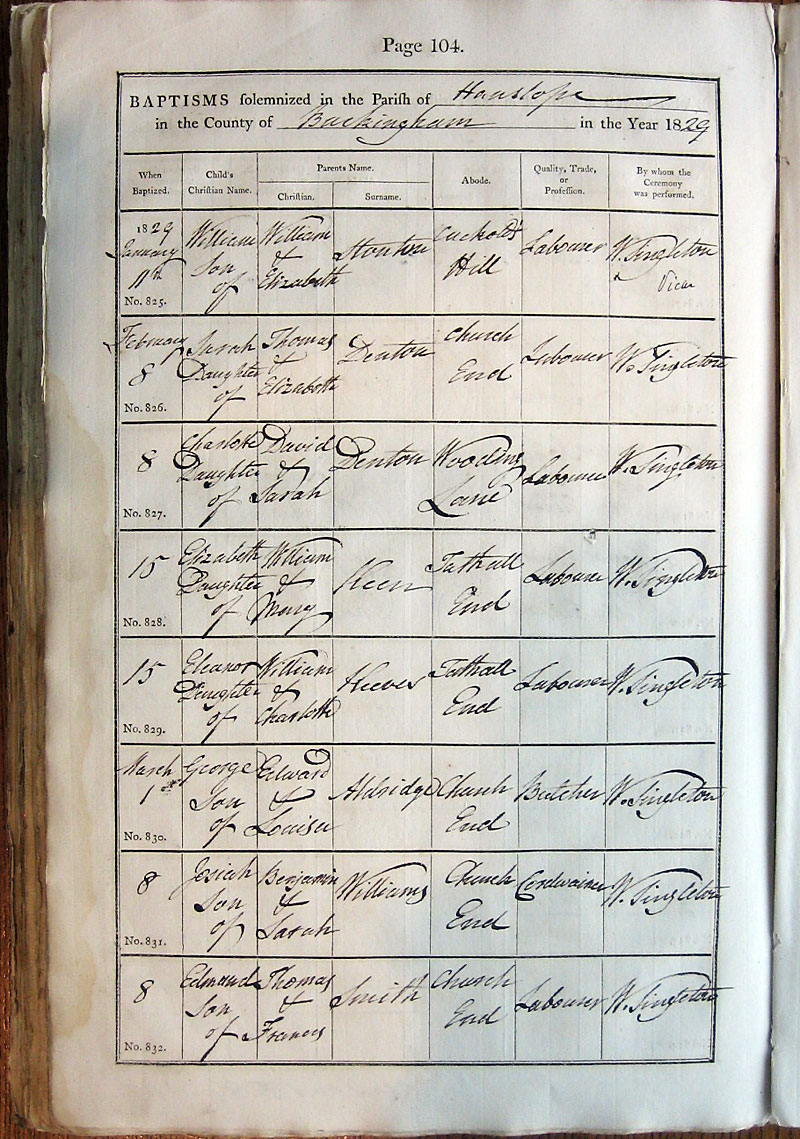 Page 104.
BAPTISMS solemnized in the Parish of Hanslope
in the County of Buckingham in the Year 1829
When Baptized. Child's Christian Name. Parents Name. Christian. Surname. Abode. Quality, Trade, or Profession. By whom the Ceremony was performed.
1829 January 11th No. 825. William Son of William & Elizabeth Stonton Cuckold's Hill Labourer W. Singleton Vicar
February 8 No. 826. Sarah Daughter of Thomas & Elizabeth Denton Church End Labourer W. Singleton
8 No. 827. Charlotte Daughter of David & Sarah Denton Wooding Lane Labourer W. Singleton
15 No. 828. Elizabeth Daughter of William & Mary Keen Tathall End Labourer W. Singleton
15 No. 829. Eleanor Daughter of William & Charlotte Reeves Tathall End Labourer W. Singleton
March 1st No. 830. George Son of Edward & Louisa Aldridge Church End Butcher W. Singleton
8 No. 831. Josiah Son of Benjamin & Sarah Williams Church End Cordwainer W. Singleton
8 No. 832. Edmund Son of Thomas & Frances Smith Church End Labourer W. Singleton